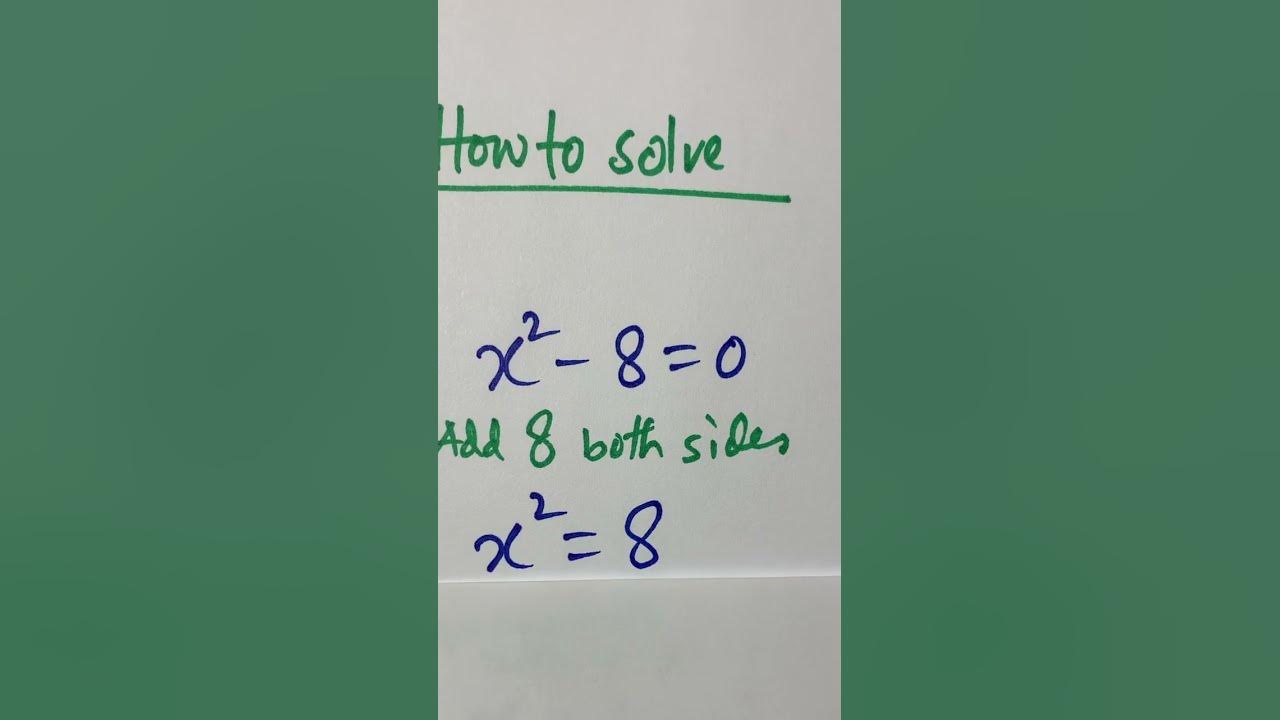 How to solve
x² - 8 = 0
Add 8 both sides
x² = 8